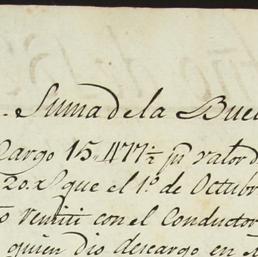 Suma de la Buel
Cargo 15,,477½ pˢ valor d
20.x q̃ que el 1º. de Octubr
con el Conductor
quien dio descargo en